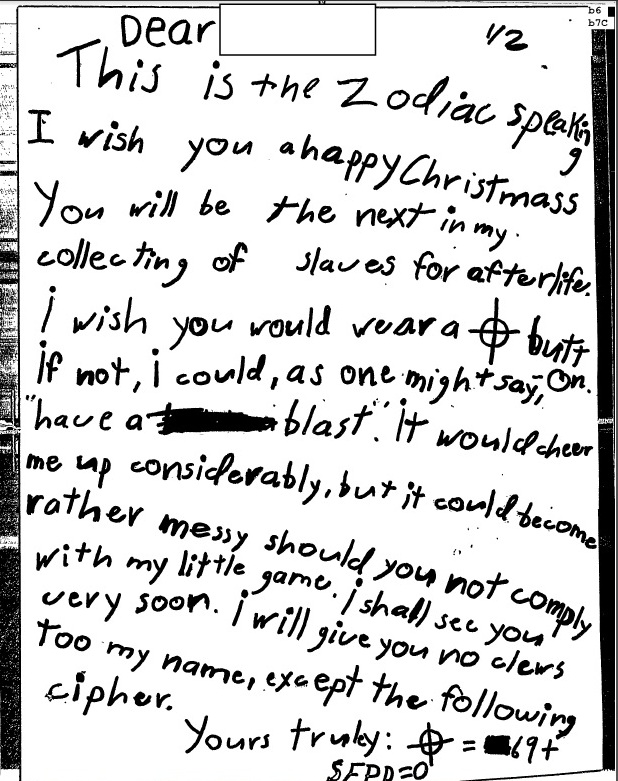 b6
b7C
Dear
1/2
This is the Zodiac speaking
I wish you a happy Christmass
You will be the next in my
collecting of slaves for afterlife.
i wish you would wear a butt
if not, i could, as one might say, on.
"have a blast". it would cheer
me up considerably, but it could become
rather messy should you not comply
with my little game. i shall see you
very soon. i will give you no clews
too my name, except the following
cipher.
Yours truley: = 69+
SFPD=0